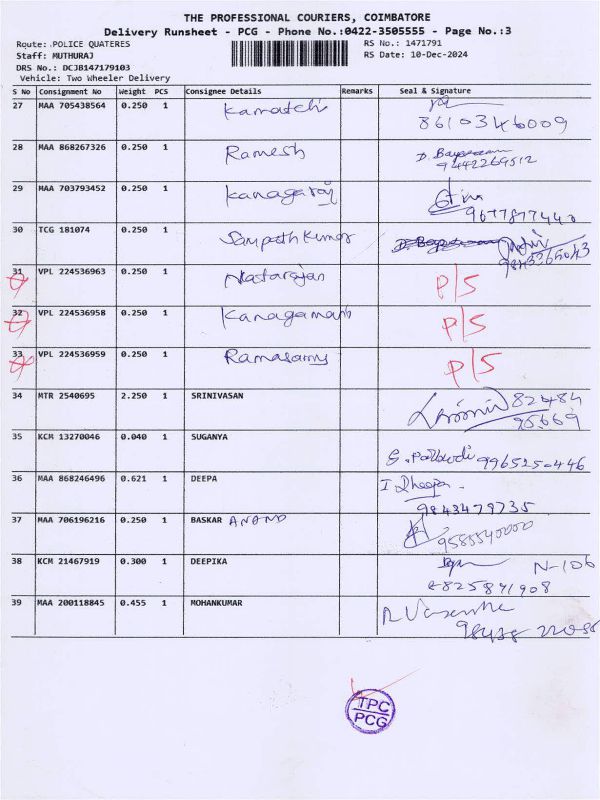 THE PROFESSIONAL COURIERS, COIMBATORE
Delivery Runsheet - PCG - Phone No.:0422-3505555 - Page No.:3
Route: POLICE QUATERES RS No.: 1471791
Staff: MUTHURAJ RS Date: 10-Dec-2024
DRS No.: DCJB147179103
Vehicle: Two Wheeler Delivery
S No Consignment No Weight PCS Consignee Details Remarks Seal & Signature
27 MAA 705438564 0.250 1 Kamatchi
8610346009
28 MAA 868267326 0.250 1 Ramesh
9442269512
29 MAA 703793452 0.250 1 Kanagaraj
9677877440
30 TCG 181074 0.250 1 Sampath Kumar
31 VPL 224536963 0.250 1 Natarajan P/S
32 VPL 224536958 0.250 1 P/S
33 VPL 224536959 0.250 1 Ramasamy P/S
34 MTR 2540695 2.250 1 SRINIVASAN 82484
95669
35 KCM 13270046 0.040 1 SUGANYA
9965250446
36 MAA 868246496 0.621 1 DEEPA I Dheepa
9843479735
37 MAA 706196216 0.250 1 BASKAR ANAND
9585540000
38 KCM 21467919 0.300 1 DEEPIKA N-106
39 MAA 200118845 0.455 1 MOHANKUMAR
TPC
PCG